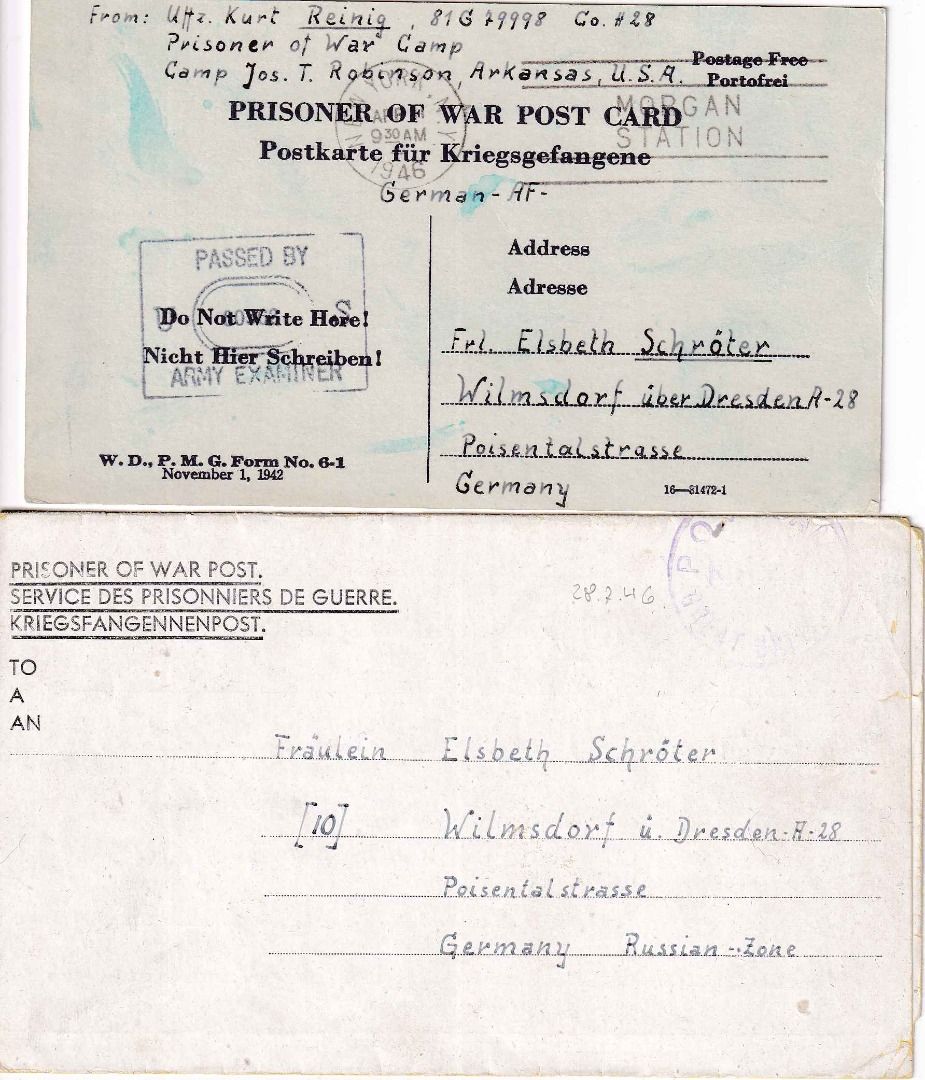 From: Uffz. Kurt Reinig, 81G 79998 Co. #28
Prisoner of War Camp
Camp Jos. T. Robinson, Arkansas, U.S.A.
Postage Free
Portofrei
PRISONER OF WAR POST CARD
MORGAN
STATION
NEW YORK, N.Y.
APR
9 30 AM
1946
Postkarte für Kriegsgefangene
German-AF-
PASSED BY
U S
ARMY EXAMINER
Do Not Write Here!
Nicht Hier Schreiben!
Address
Adresse
Frl. Elsbeth Schröter
Wilmsdorf über Dresden A-28
Poisentalstrasse
Germany
W. D., P. M. G. Form No. 6-1
November 1, 1942
16—31472-1
PRISONER OF WAR POST.
SERVICE DES PRISONNIERS DE GUERRE.
KRIEGSFANGENNENPOST.
28.7.46
TO
A
AN
Fräulein Elsbeth Schröter
[10] Wilmsdorf ü. Dresden-A-28
Poisentalstrasse
Germany Russian-Zone